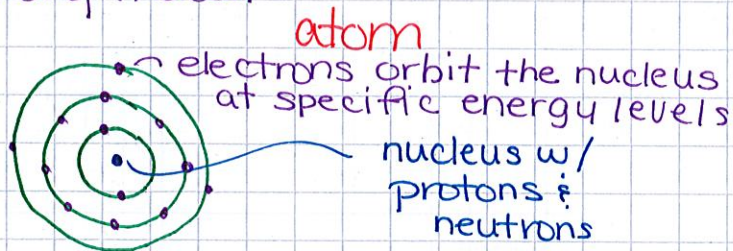 atom
electrons orbit the nucleus
at specific energy levels
nucleus w/
protons &
neutrons